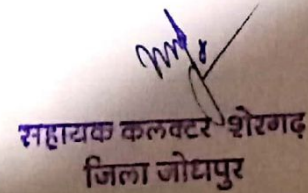 सहायक कलक्टर शेरगढ़
जिला जोधपुर